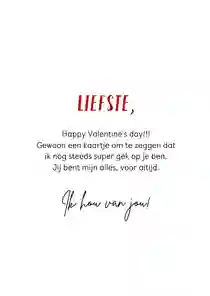 LIEFSTE,
Happy Valentine's day!!!
Gewoon een kaartje om te zeggen dat
ik nog steeds super gek op je ben.
Jij bent mijn alles, voor altijd.
Ik hou van jou!